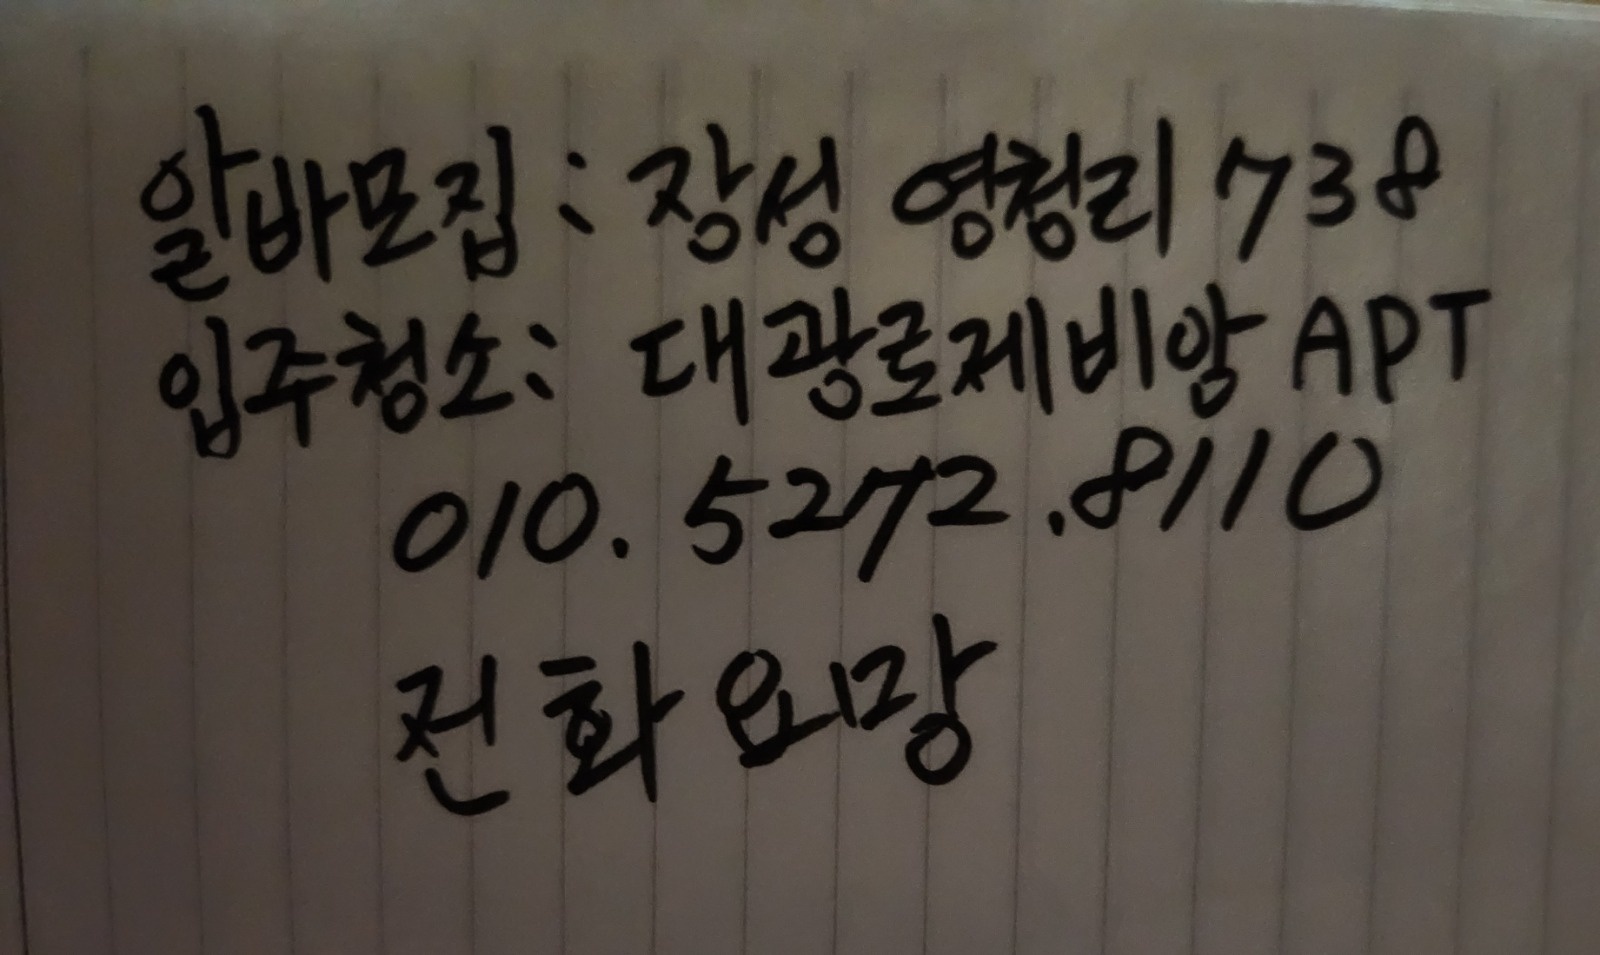 알바모집: 장성 영천리 738
입주청소: 대광로제비앙 APT
010. 5272. 8110
전화 요망